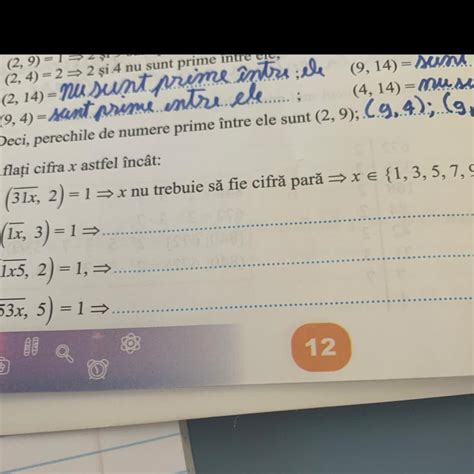 (2, 9) = 1 ⇒ 2 și
(2, 4) = 2 ⇒ 2 și 4 nu sunt prime între ele;
(2, 14) = nu sunt prime între ; ele
(9, 4) = sant prime entre ele ;
(9, 14) = sunt
(4, 14) = nu su
Deci, perechile de numere prime între ele sunt (2, 9); (9,4); (9,
flați cifra x astfel încât:
(31x, 2) = 1 ⇒ x nu trebuie să fie cifră pară ⇒ x ∈ {1, 3, 5, 7, 9
(1x, 3) = 1 ⇒
1x5, 2) = 1, ⇒
53x, 5) = 1 ⇒
12